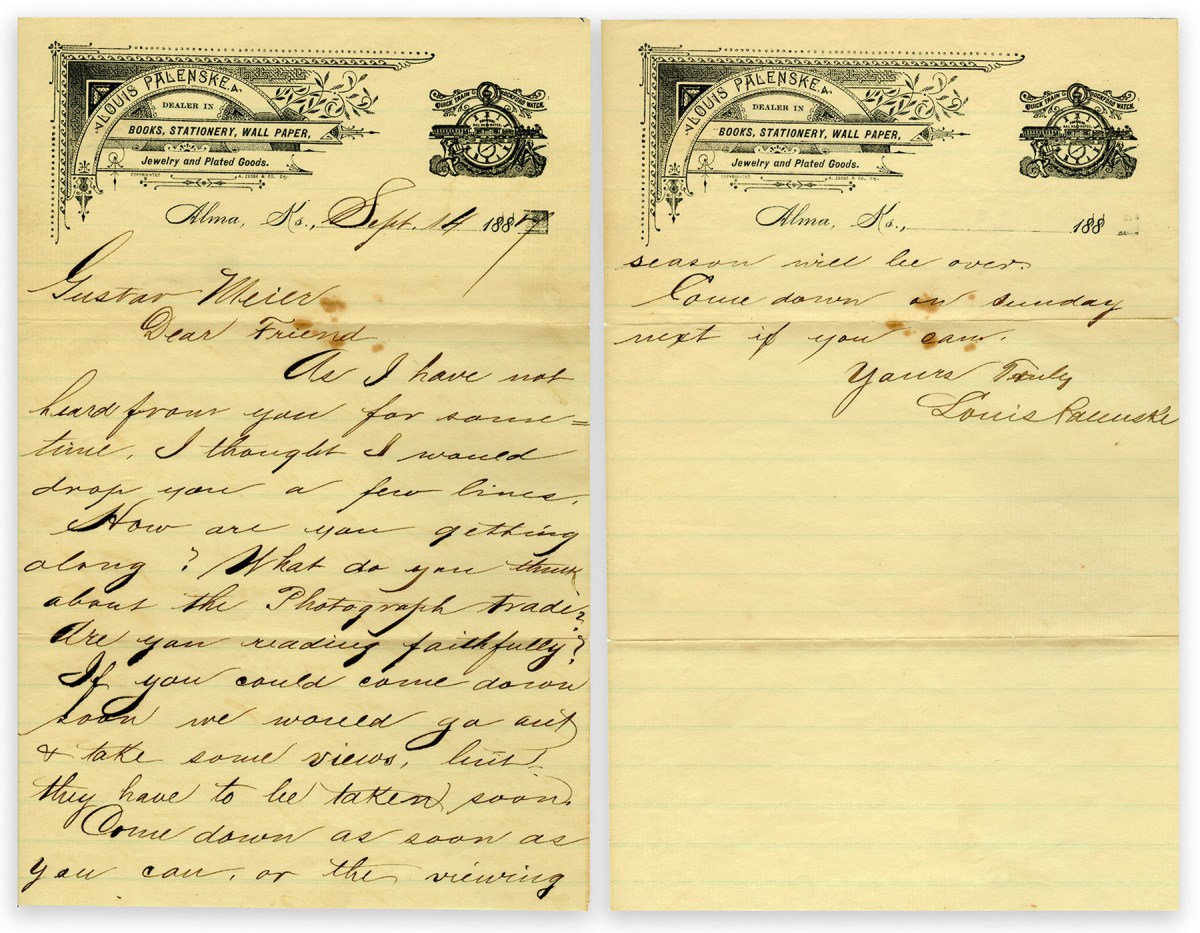 LOUIS PALENSKE.
DEALER IN
BOOKS, STATIONERY, WALL PAPER,
Jewelry and Plated Goods.
QUICK TRAIN ROCKFORD WATCH.
Alma, Ks., Sept. 14 1887
Gustav Meier
Dear Friend
As I have not
heard from you for some=
time, I thought I would
drop you a few lines.
How are you getting
along? What do you think
about the Photograph trade?
Are you reading faithfully?
If you could come down
soon we would go out
& take some views, but
they have to be taken soon.
Come down as soon as
you can, or the viewing
LOUIS PALENSKE.
DEALER IN
BOOKS, STATIONERY, WALL PAPER,
Jewelry and Plated Goods.
QUICK TRAIN ROCKFORD WATCH.
Alma, Ks., 188
season will be over.
Come down on sunday
next if you can.
Yours Truly
Louis Palenske